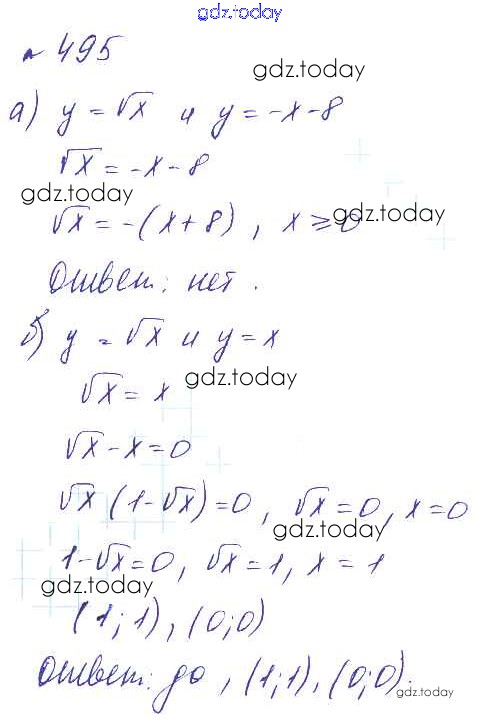 gdz.today
№ 495
gdz.today
а) y = √x и y = -x - 8
√x = -x - 8
gdz.today
√x = -(x + 8), x ≥ 0
gdz.today
Ответ: нет.
б) y = √x и y = x
gdz.today
√x = x
√x - x = 0
√x (1 - √x) = 0, √x = 0, x = 0
gdz.today
1 - √x = 0, √x = 1, x = 1
gdz.today
(1; 1), (0; 0)
Ответ: да, (1; 1), (0; 0).
gdz.today